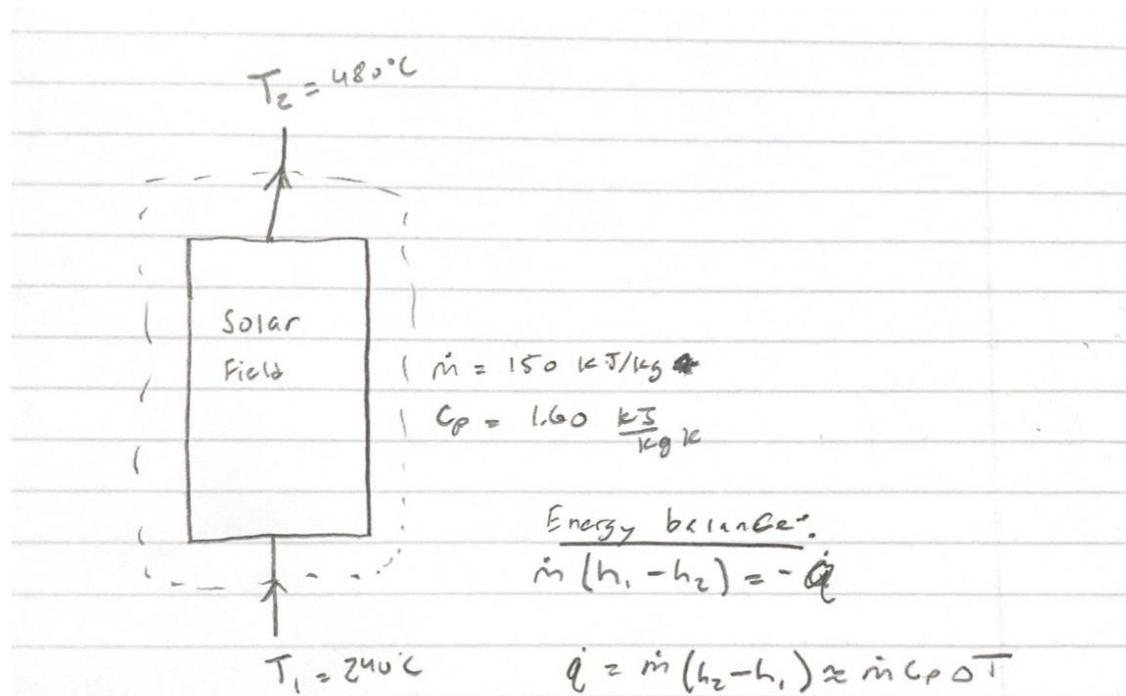 T₂ = 480°C
Solar
Field
ṁ = 150 kJ/kg
Cp = 1.60 kJ/kg K
Energy balance:
ṁ (h₁ - h₂) = -q̇
T₁ = 240°C
q̇ = ṁ (h₂-h₁) ≈ ṁ Cp ΔT